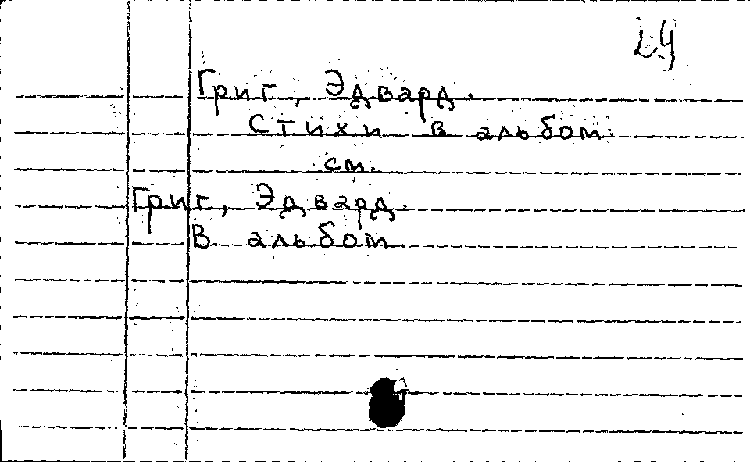 24
Григ, Эдвард.
Стихи в альбом.
см.
Григ, Эдвард.
В альбом